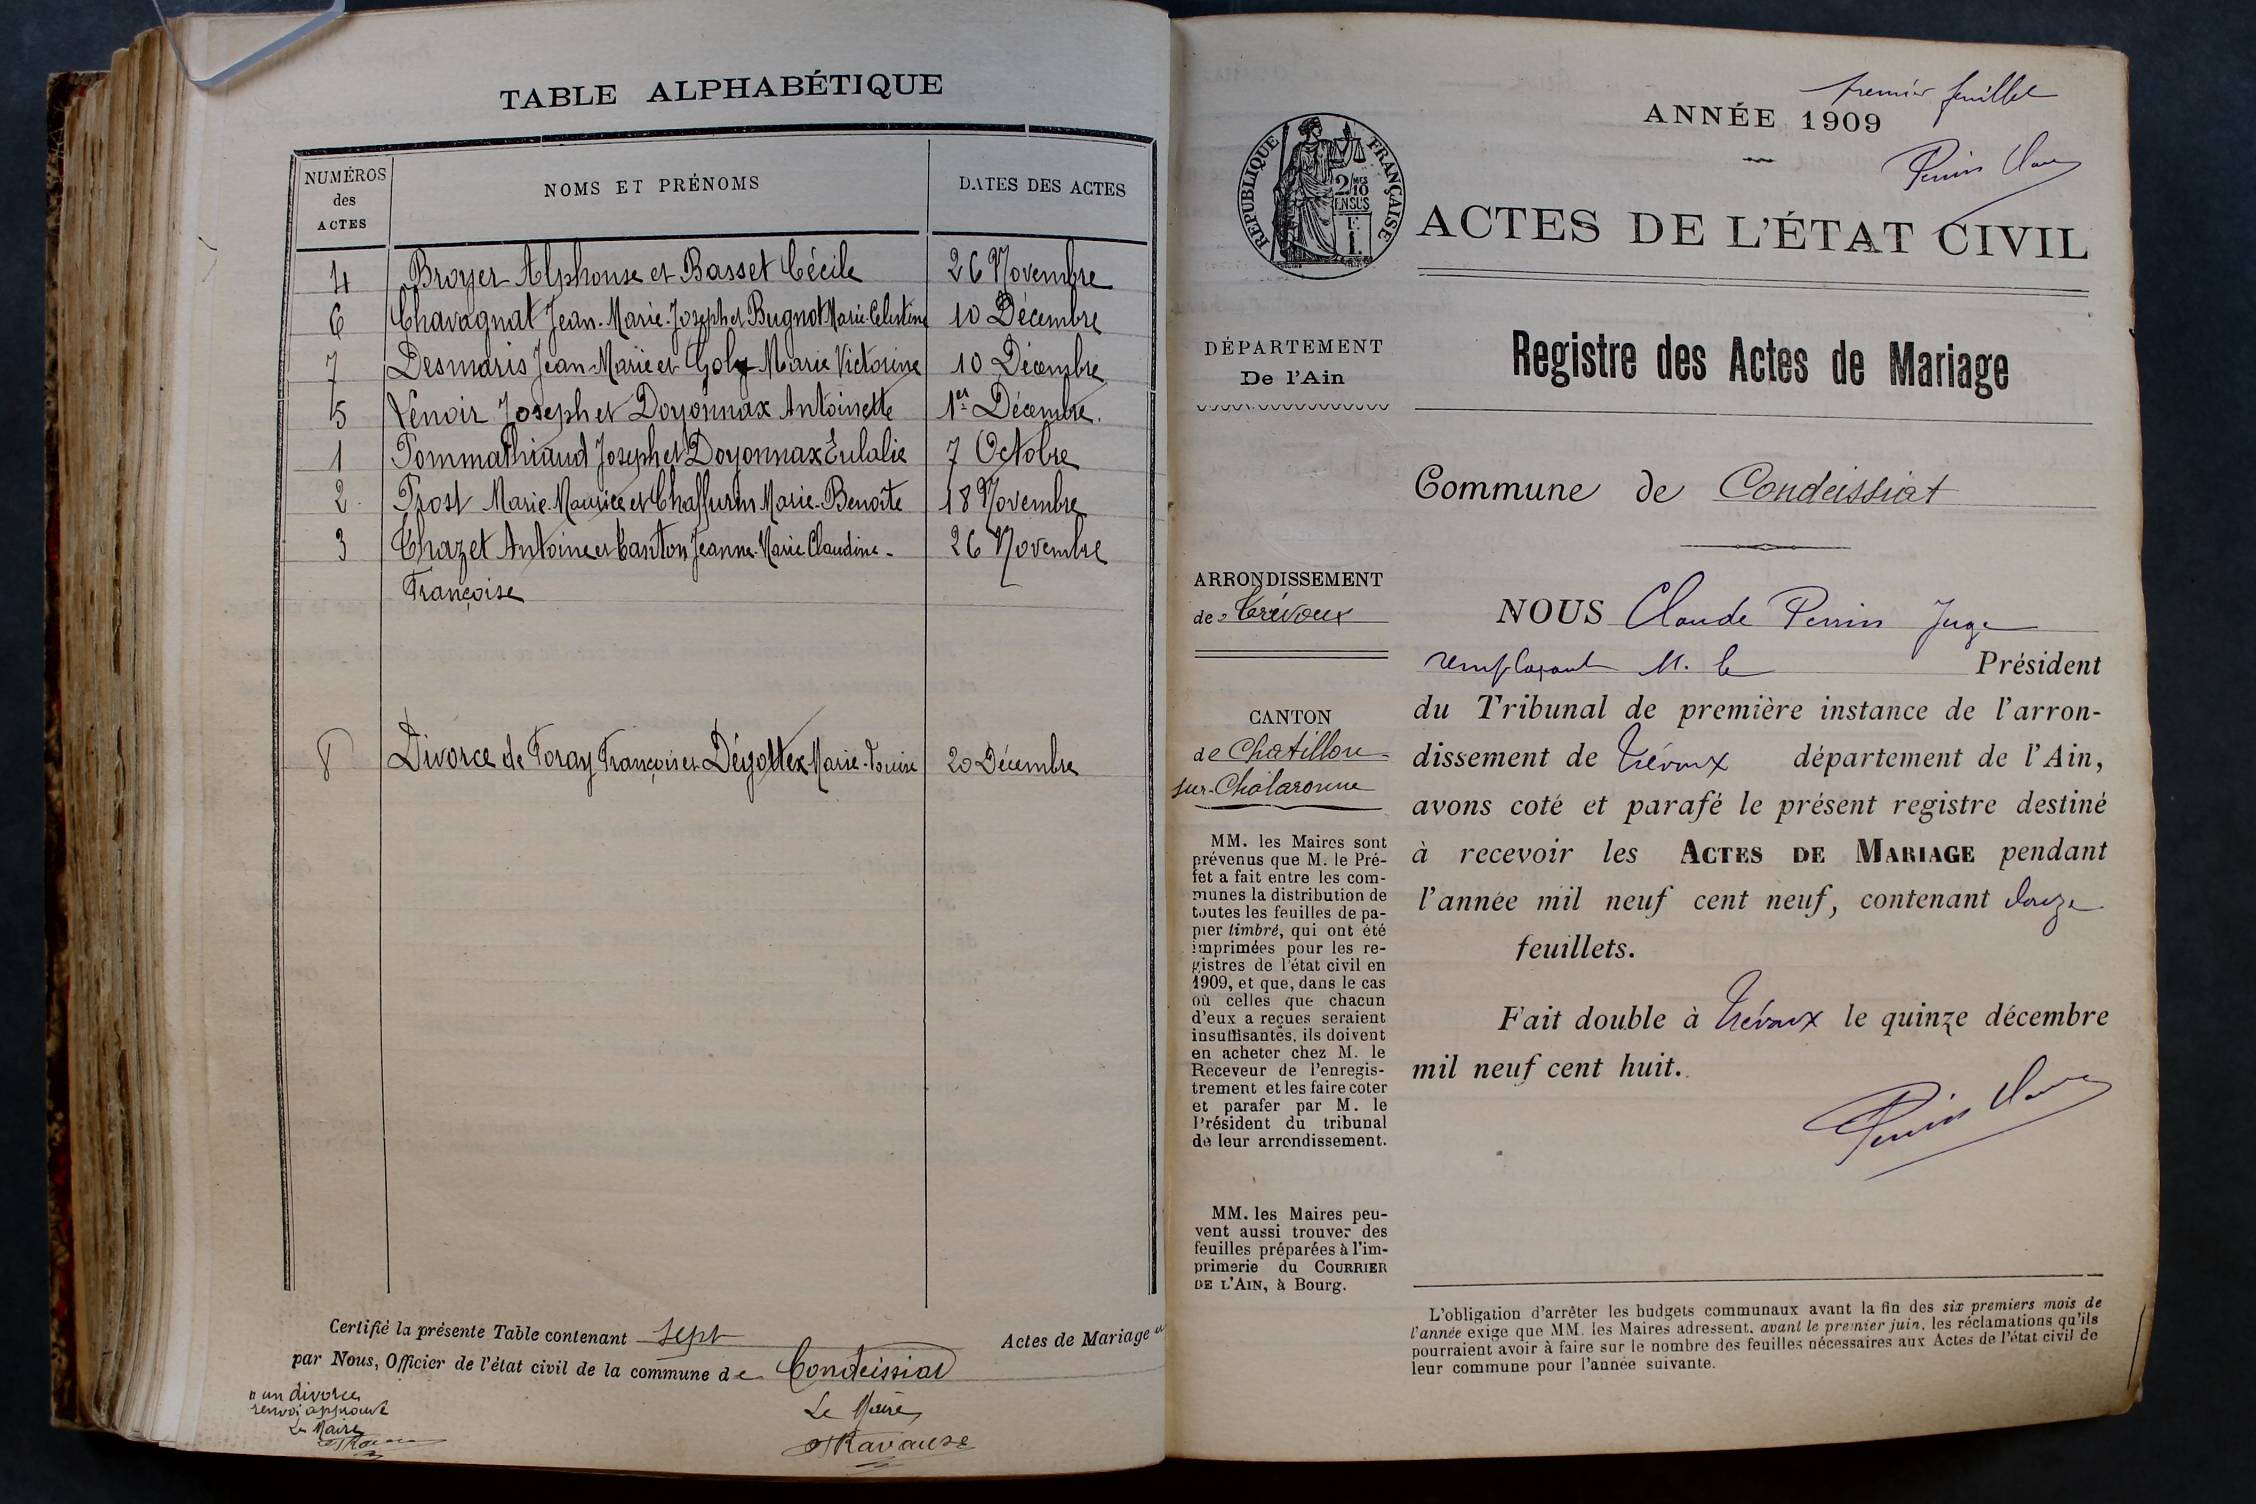 TABLE ALPHABÉTIQUE
NUMÉROS des ACTES
NOMS ET PRÉNOMS
DATES DES ACTES
4 Broyer Alphonse et Basset Cécile 26 Novembre
6 Chavagnat Jean-Marie-Joseph et Bugnot Marie-Celestine 10 Décembre
7 Desmaris Jean-Marie et Goly Marie Victorine 10 Décembre
5 Venoir Joseph et Doyonnax Antoinette 1er Décembre.
1 Pommathiaud Joseph et Doyonnax Eulalie 7 Octobre
2 Prost Marie-Maurice et Chaffurin Marie-Benoite 18 Novembre
3 Chazet Antoine et Canton Jeanne-Marie Claudine- 26 Novembre
Françoise
8 Divorce de Foray François et Dégottex Marie-Louise 20 Décembre
Certifié la présente Table contenant sept Actes de Mariage "
par Nous, Officier de l'état civil de la commune de Condeissiat
" un divorce
renvoi approuvé
Le Maire
Le Maire
Ravause
premier feuillet
ANNÉE 1909
Perrin Claude
RÉPUBLIQUE FRANÇAISE
2/10 MES
EN SUS
1 F.
ACTES DE L'ÉTAT CIVIL
DÉPARTEMENT
De l'Ain
ARRONDISSEMENT
de Trévoux
CANTON
de Chatillon
sur-Chalaronne
MM. les Maires sont
prévenus que M. le Pré-
fet a fait entre les com-
munes la distribution de
toutes les feuilles de pa-
pier timbré, qui ont été
imprimées pour les re-
gistres de l'état civil en
1909, et que, dans le cas
où celles que chacun
d'eux a reçues seraient
insuffisantes, ils doivent
en acheter chez M. le
Receveur de l'enregis-
trement et les faire coter
et parafer par M. le
Président du tribunal
de leur arrondissement.
MM. les Maires peu-
vent aussi trouver des
feuilles préparées à l'im-
primerie du COURRIER
DE L'AIN, à Bourg.
Registre des Actes de Mariage
Commune de Condeissiat
NOUS Claude Perrin Juge
remplaçant M. le Président
du Tribunal de première instance de l'arron-
dissement de Trévoux département de l'Ain,
avons coté et parafé le présent registre destiné
à recevoir les ACTES DE MARIAGE pendant
l'année mil neuf cent neuf, contenant douze
feuillets.
Fait double à Trévoux le quinze décembre
mil neuf cent huit.
Perrin Claude
L'obligation d'arrêter les budgets communaux avant la fin des six premiers mois de
l'année exige que MM. les Maires adressent, avant le premier juin, les réclamations qu'ils
pourraient avoir à faire sur le nombre des feuilles nécessaires aux Actes de l'état civil de
leur commune pour l'année suivante.